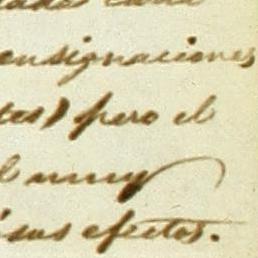 onsignaciones
tes) pero el
l muy
sus efectos.